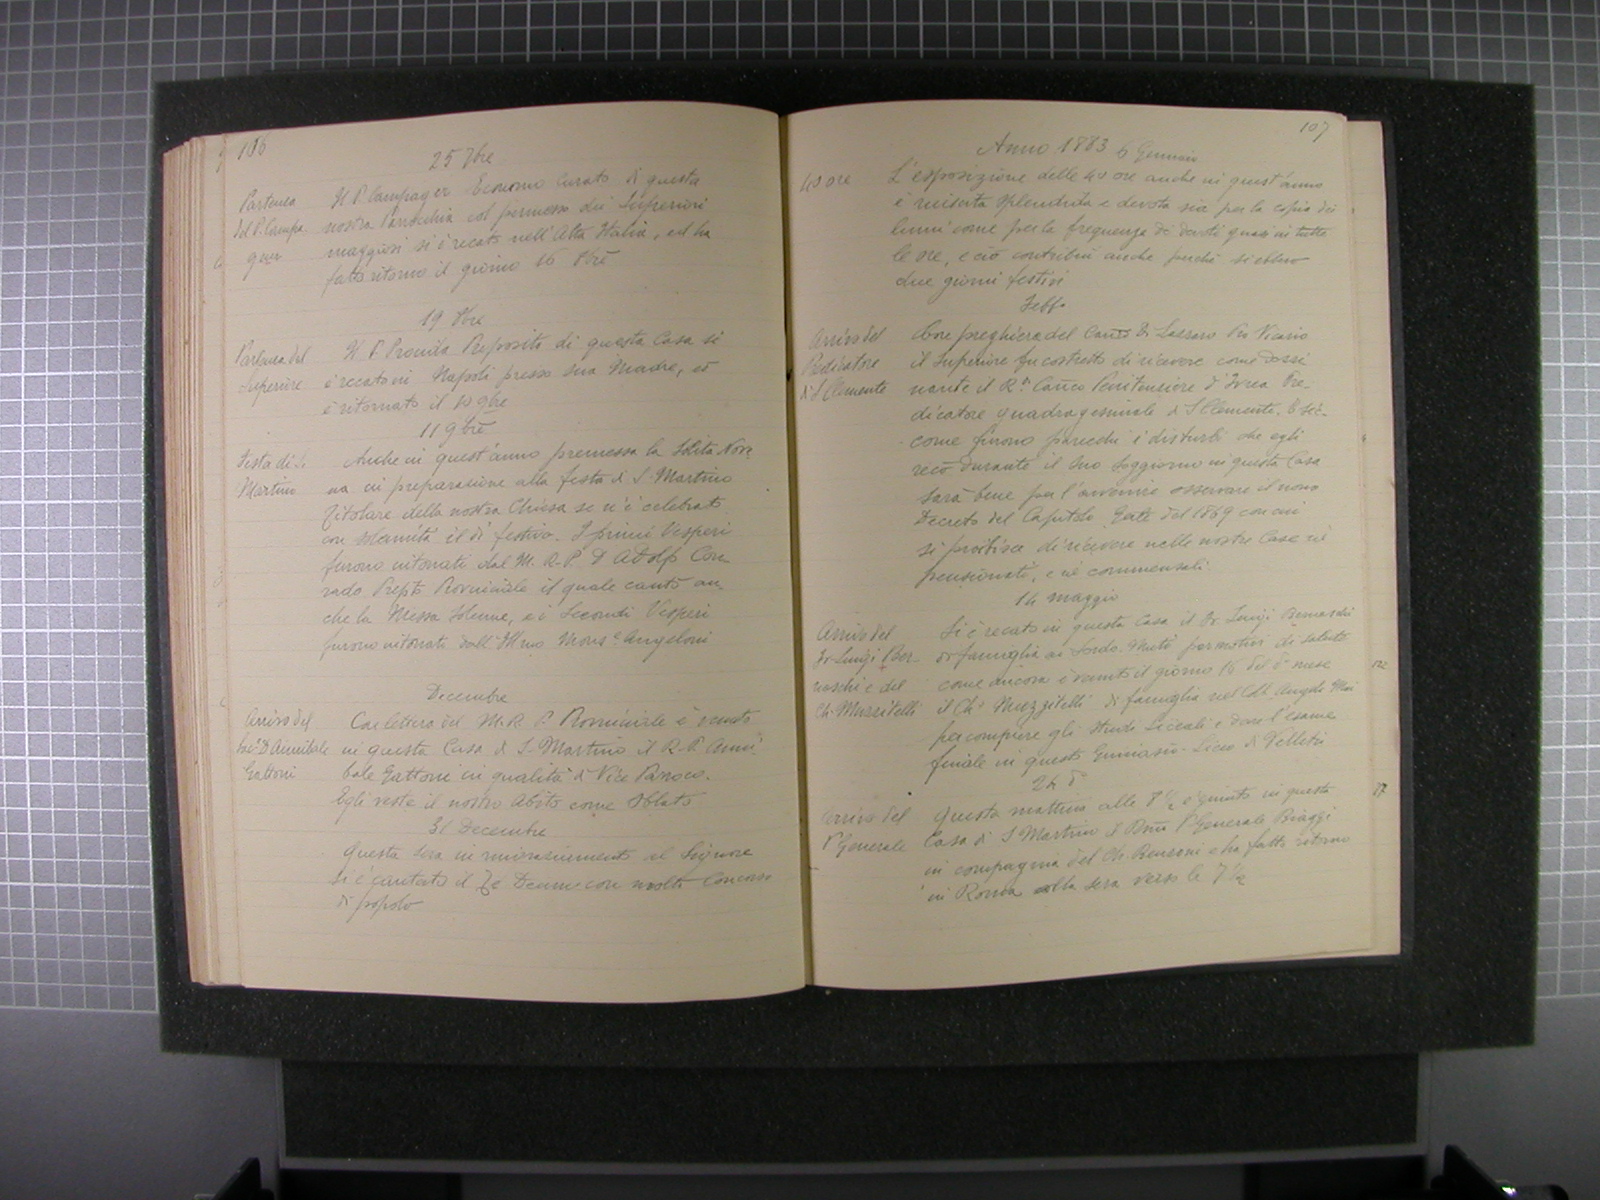 106
25 7bre
Partenza
del P. Campa
ger
Il P. Campager Economo Curato di questa
nostra Parrocchia col permesso dei Superiori
maggiori si è recato nell'Alta Italia, ed ha
fatto ritorno il giorno 16 8bre
19 8bre
Partenza del
Superiore
Il P. Preposito di questa Casa si
è recato in Napoli presso sua Madre, ed
è ritornato il 10 9bre
11 9bre
Festa di S.
Martino
Anche in quest'anno premessa la solita Nove
na in preparazione alla festa di S. Martino
Titolare della nostra Chiesa se n'è celebrato
con solennità il dì festivo. I primi Vesperi
furono intonati dal M. R. P. D. Adolfo Con
rado Prepto Provinciale il quale cantò an
che la Messa solenne, e i Secondi Vesperi
furono intonati dall'Illmo Monse Angeloni
Decembre
Arrivo del
D. Annibale
Gattoni
Con lettera del M. R. P. Provinciale è venuto
in questa Casa di S. Martino il R. P. Anni
bale Gattoni in qualità di Vice Parroco.
Egli veste il nostro Abito come Oblato
31 Decembre
Questa sera in ringraziamento al Signore
si è cantato il Te Deum con molto concorso
di popolo
107
Anno 1883 6 Gennaio
40 ore
L'esposizione delle 40 ore anche in quest'anno
è riuscita splendida e devota sia per la copia dei
lumi come per la frequenza di devoti quasi in tutte
le ore, e ciò contribuì anche perchè si ebbero
due giorni festivi
Febb.
Arrivo del
Predicatore
di S. Clemente
preghiera del Canco Di Lazzaro Pro Vicario
il Superiore fu costretto di ricevere come
nante il R. Canco Penitenziere d'Ivrea Pre-
dicatore quadragesimale di S. Clemente. E sic-
come furono parecchi i disturbi che egli
recò durante il suo soggiorno in questa Casa
sarà bene per l'avvenire osservare il
Decreto del Capitolo Gnle del 1869 con cui
si proibisce di ricevere nelle nostre Case nè
pensionati, e nè commensali
14 maggio
Arrivo del
Fr Luigi Ber-
naschi e del
Ch. Muzzitelli
Si è recato in questa Casa il Fr Luigi Bernaschi
di famiglia ai Sordo-Muti per motivi di salute
come ancora è venuto il giorno 16 del do mese
il Ch. Muzzitelli di famiglia nel Coll. Angelo Mai
per compiere gli studi liceali e dare l'esame
finale in questo Ginnasio-Liceo di Velletri
24 do
Arrivo del
P. Generale
Questa mattina alle 8 1/2 è giunto in questa
Casa di S. Martino il Rmo P. Generale Biaggi
in compagnia del Ch. Benzoni e ha fatto ritorno
in Roma alla sera verso le 7 1/2